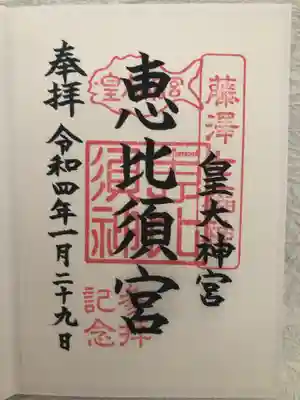 藤澤
皇大神宮
恵比須宮
参拝
記念
奉拝
令和四年一月二十九日